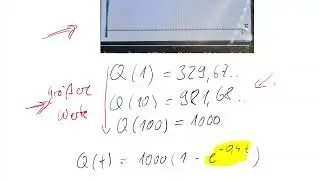 Q(1) = 329,67..
größere
Werte
Q(10) = 981,68..
Q(100) = 1000
Q(t) = 1000(1 - e^-0,4t)